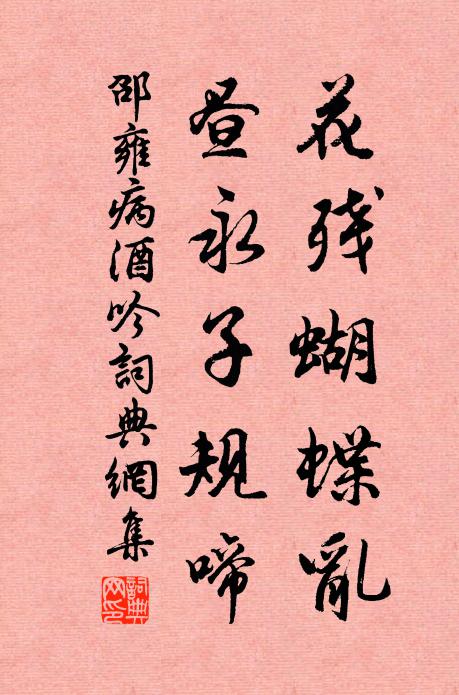 花残蝴蝶亂
昼永子規啼
邵雍病酒吟詞典網集
詞典网印